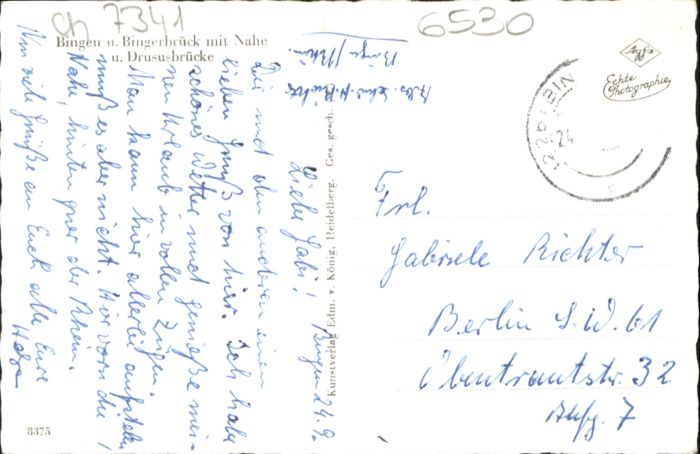 ch 7341
6530
Bingen u. Bingerbrück mit Nahe
u. Drususbrücke
Bingen 24.9.
Liebe Gabi!
Dir und den anderen einen
lieben Gruß von hier. Ich habe
schönes Wetter und genieße mei-
nen Urlaub in vollen Zügen.
Man kann hier allerlei aufstellen,
muß es aber nicht. Hier vorn die
Nahe, hinten quer der Rhein.
Nun viele Grüße an Euch alle Eure
Bingen/Rhein
Kunstverlag Edm. v. König, Heidelberg. Ges. gesch.
Agfa
Echte
Photographie
24
Frl.
Gabriele Richter
Berlin S.W. 61
Obentrautstr. 32
Aufg. 7
8375